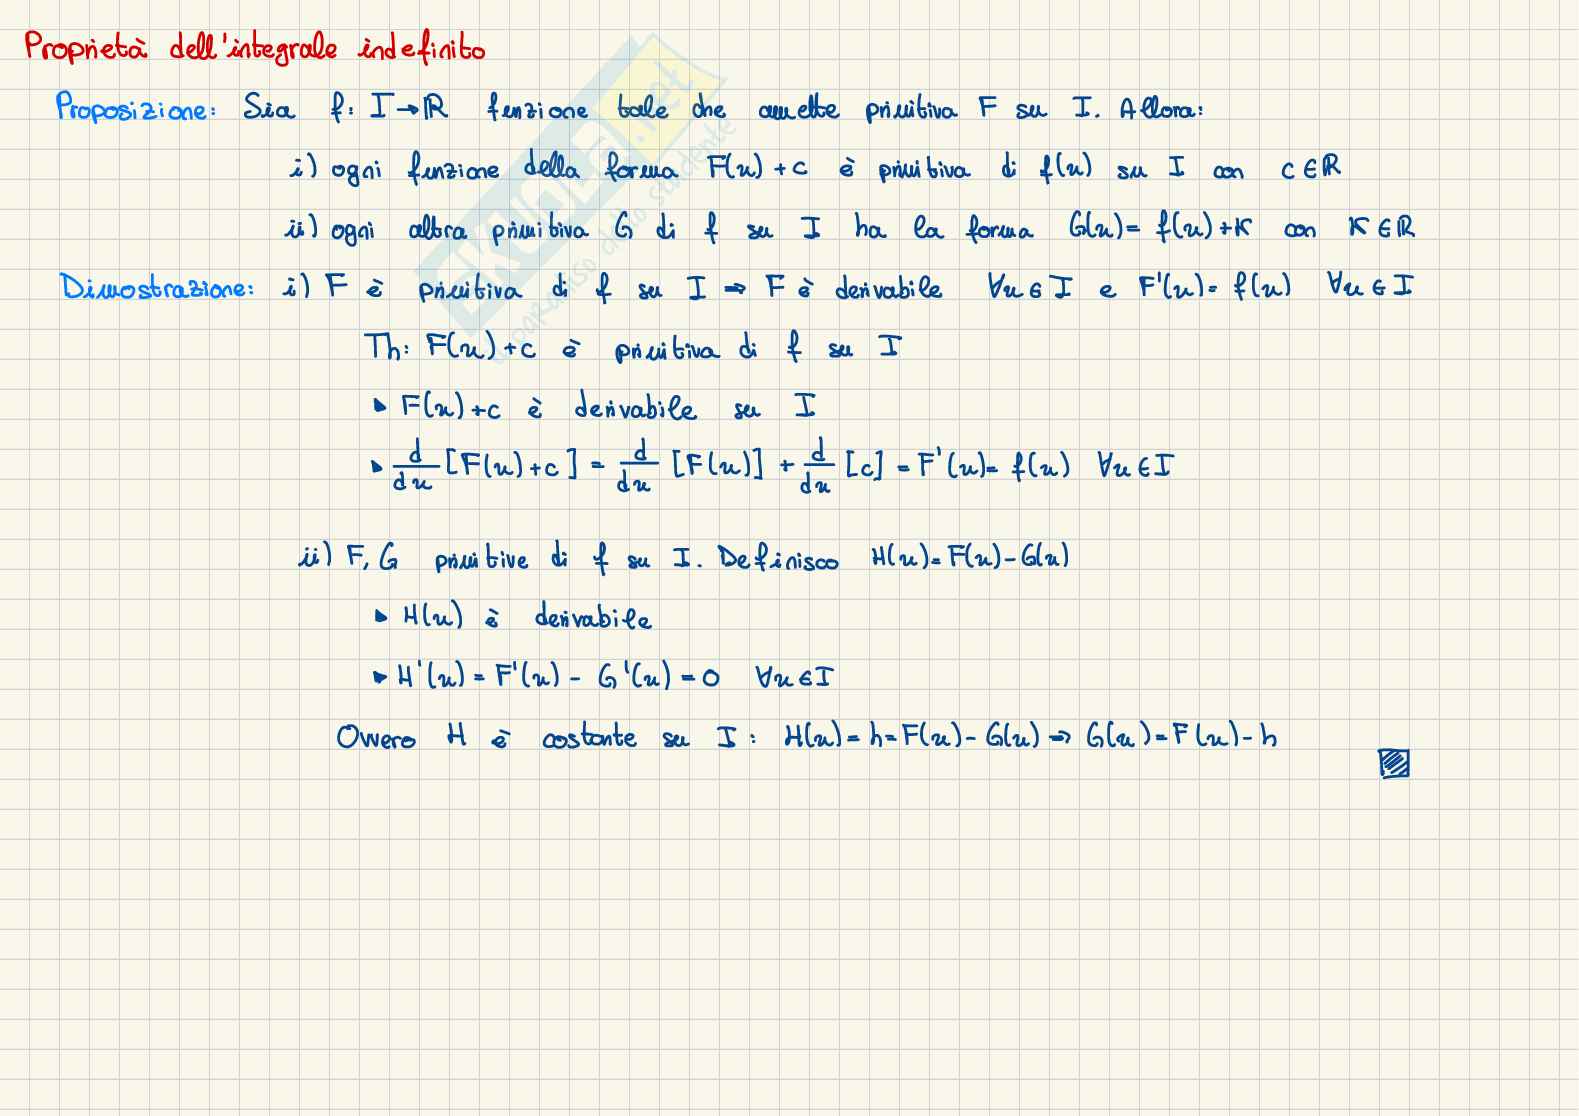 Proprietà dell'integrale indefinito
Proposizione: Sia f: I→ℝ funzione tale che ammette primitiva F su I. Allora:
i) ogni funzione della forma F(x)+c è primitiva di f(x) su I con c∈ℝ
ii) ogni altra primitiva G di f su I ha la forma G(x)= f(x)+K con K∈ℝ
Dimostrazione: i) F è primitiva di f su I ⇒ F è derivabile ∀x∈I e F'(x)= f(x) ∀x∈I
Th: F(x)+c è primitiva di f su I
▸ F(x)+c è derivabile su I
▸ d/dx [F(x)+c] = d/dx [F(x)] + d/dx [c] = F'(x)= f(x) ∀x∈I
ii) F, G primitive di f su I. Definisco H(x)=F(x)-G(x)
▸ H(x) è derivabile
▸ H'(x)= F'(x) - G'(x) = 0 ∀x∈I
Ovvero H è costante su I: H(x)= h = F(x)- G(x) ⇒ G(x)=F(x)- h
SKUOLA.net
il paradiso dello studente